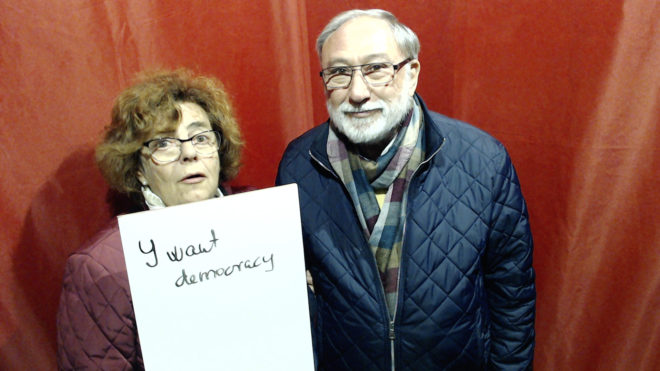 Y want
democracy